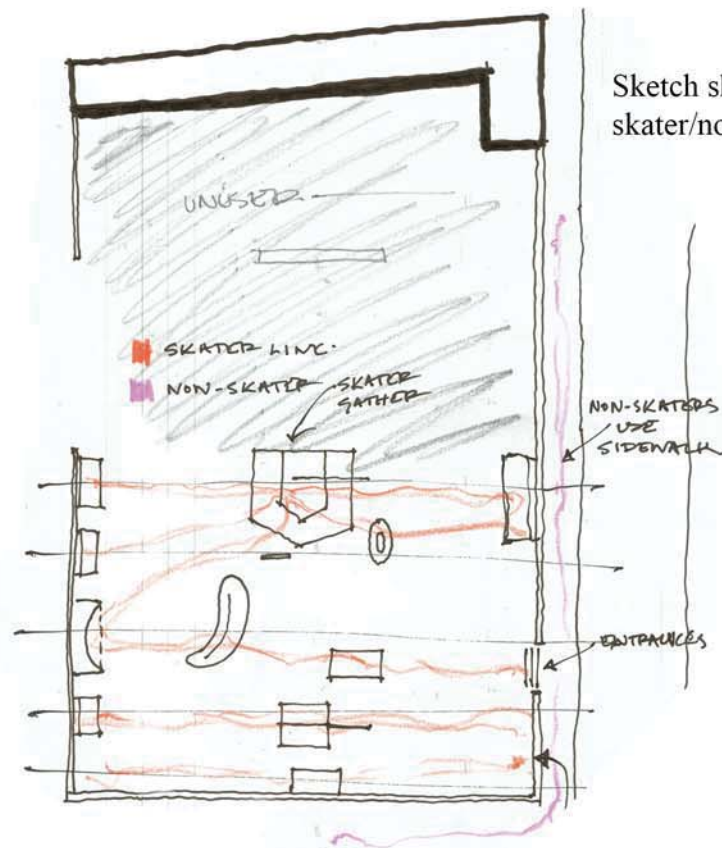 Sketch sl
skater/no
UNUSED
SKATER LINE.
NON-SKATER
SKATER
GATHER
NON-SKATERS
USE
SIDEWALK
ENTRANCES